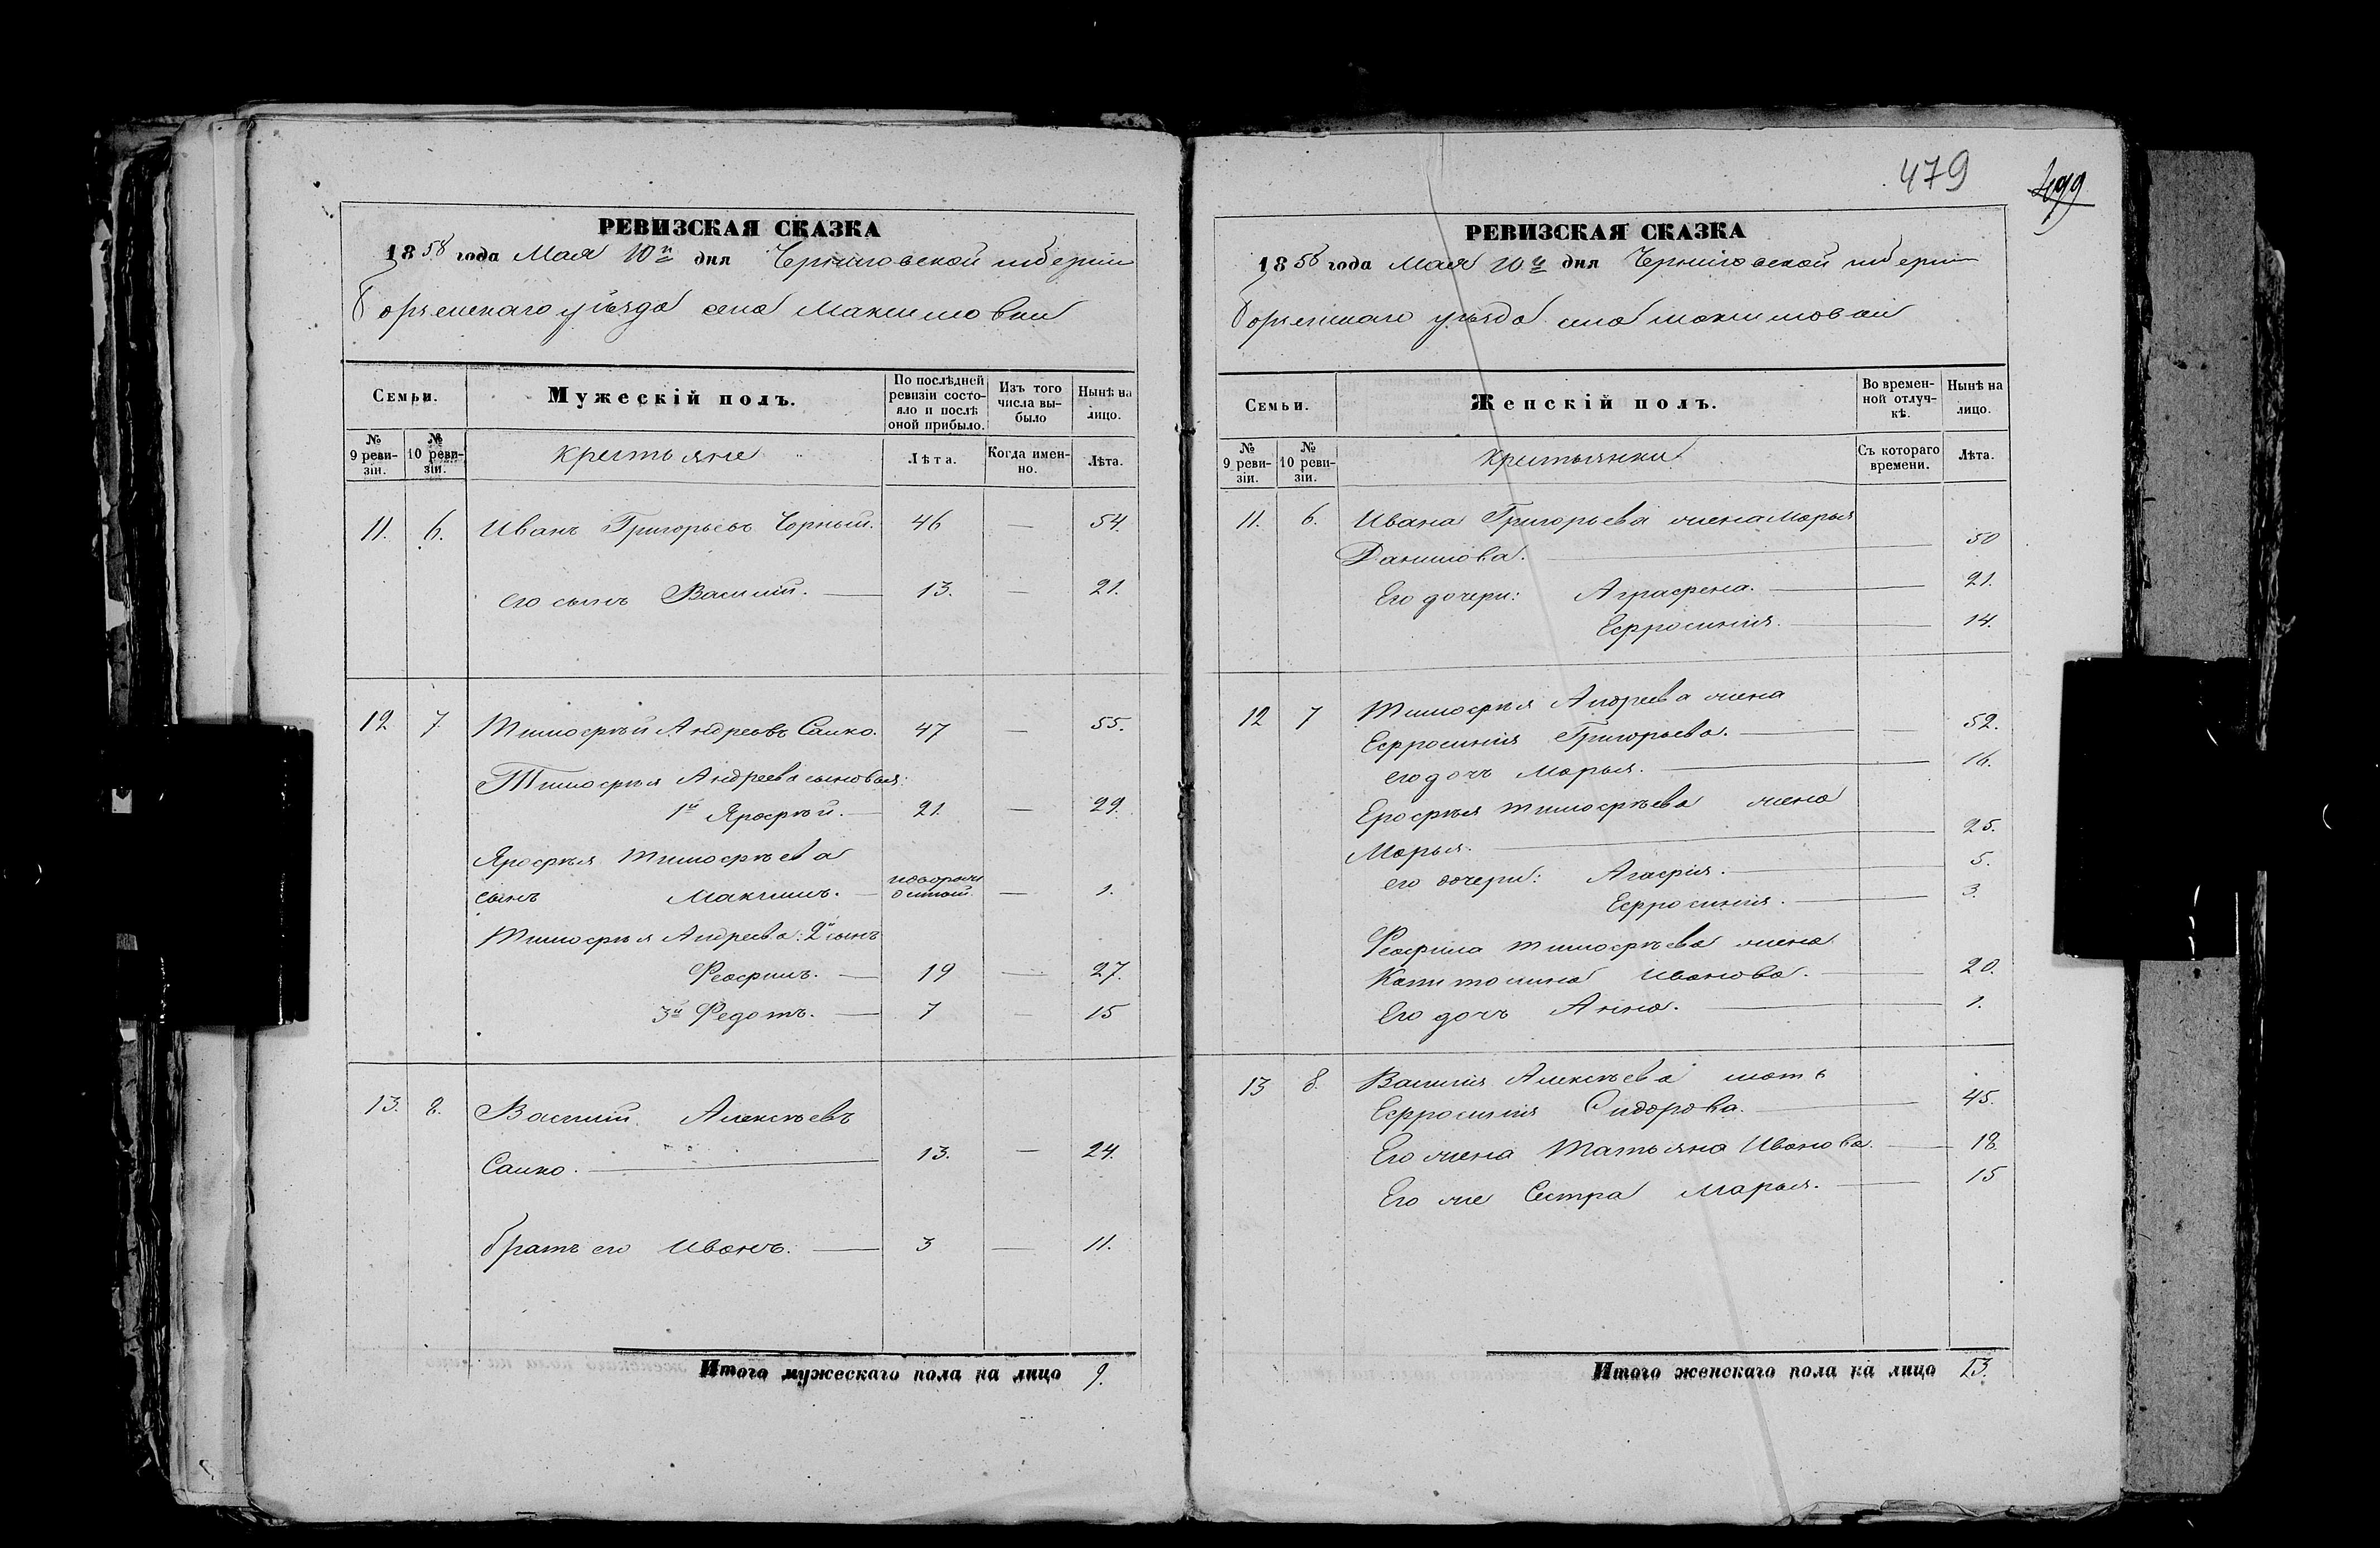 479
499
РЕВИЗСКАЯ СКАЗКА
1858 года Мая 10го дня Черниговской губернии
Борзенскаго уѣзда села Максимовки
Семьи.
Мужескій полъ.
По послѣдней ревизіи состояло и послѣ оной прибыло.
Изъ того числа выбыло
Нынѣ на лицо.
№ 9 ревизіи.
№ 10 ревизіи.
крестьяне
Лѣта.
Когда именно.
Лѣта.
11. 6. Иванъ Григорьевъ Чорный. 46 — 54.
его сынъ Василій. — 13. — 21.
12 7 Тимофѣй Андреевъ Сайко. 47 — 55.
Тимофѣя Андреева сыновья:
1й Ярофѣй. — 21. — 29.
Ярофѣя Тимофѣева
сынъ Максимъ. — новорожденный — 1.
Тимофѣя Андреева: 2й сынъ
Феофилъ. — 19 — 27.
3й Федотъ. — 7 — 15
13. 8. Василій Алексѣевъ
Сайко. — 13. — 24.
братъ его Иванъ. — 3 — 11.
Итого мужескаго пола на лицо 9.
РЕВИЗСКАЯ СКАЗКА
1858 года Мая 10го дня Черниговской губернии
Борзенскаго уѣзда села Максимовки
Семьи.
Женскій полъ.
Во временной отлучкѣ.
Нынѣ на лицо.
№ 9 ревизіи.
№ 10 ревизіи.
крестьянки
Съ котораго времени.
Лѣта.
11. 6. Ивана Григорьева жена Марья
Данилова. — 50
Его дочери: Аграфена. — 21.
Ефросинія. — 14.
12 7 Тимофѣя Андреева жена
Ефросинія Григорьева. — 52.
его дочь Марья. — 16.
Ерофѣя Тимофѣева жена
Марья. — 25.
его дочери: Агафія. — 5.
Ефросинія. — 3.
Феофила Тимофѣева жена
Капитолина Иванова. — 20.
Его дочь Анна. — 1.
13 8. Василія Алексѣева мать
Ефросинія Сидорова. — 45.
Его жена Татьяна Иванова. — 18.
Его же Сестра Марья. — 15
Итого женскаго пола на лицо 13.